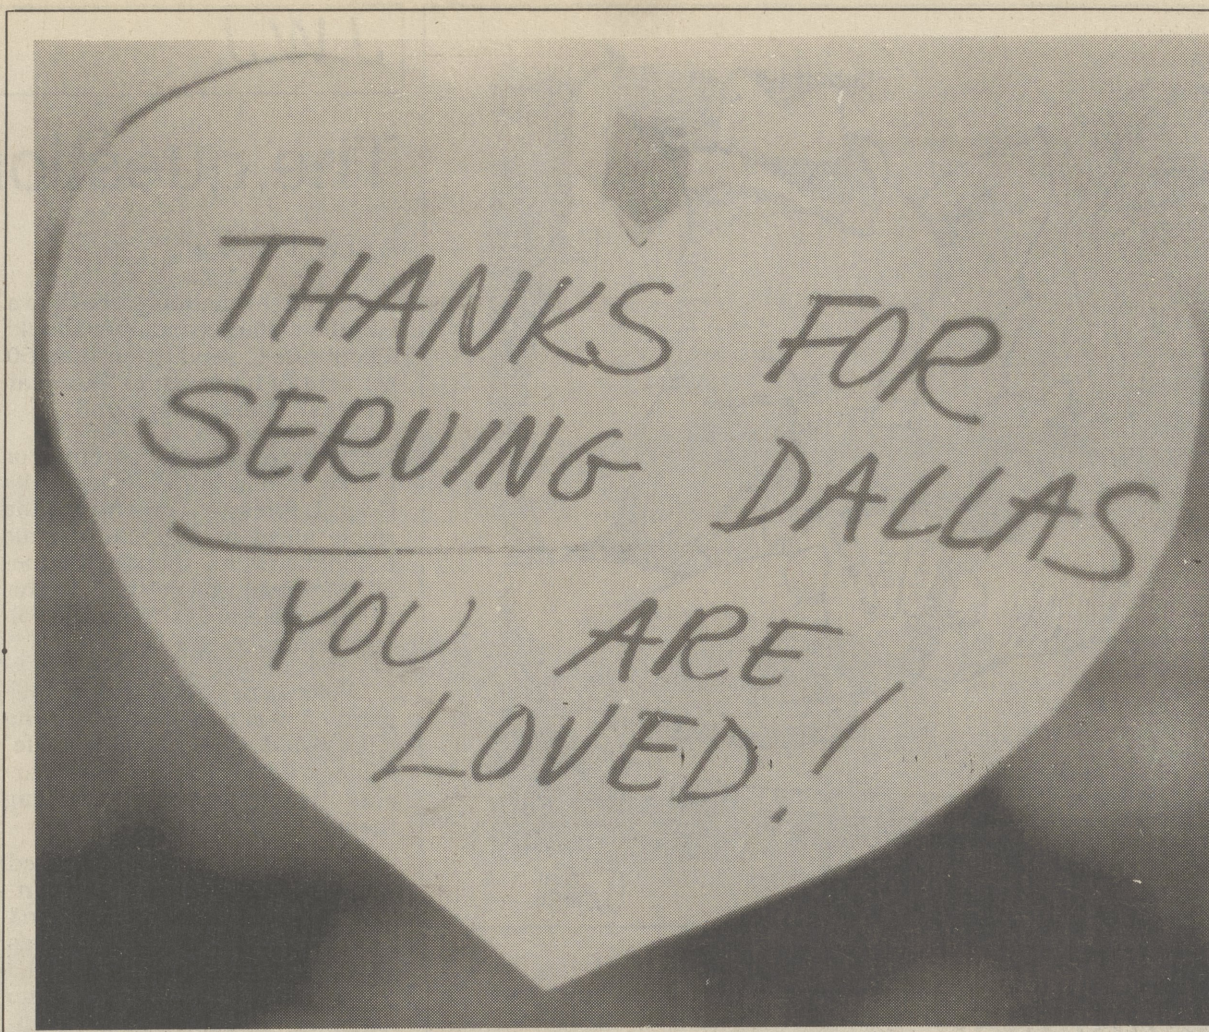 THANKS FOR
SERVING DALLAS
YOU ARE
LOVED!